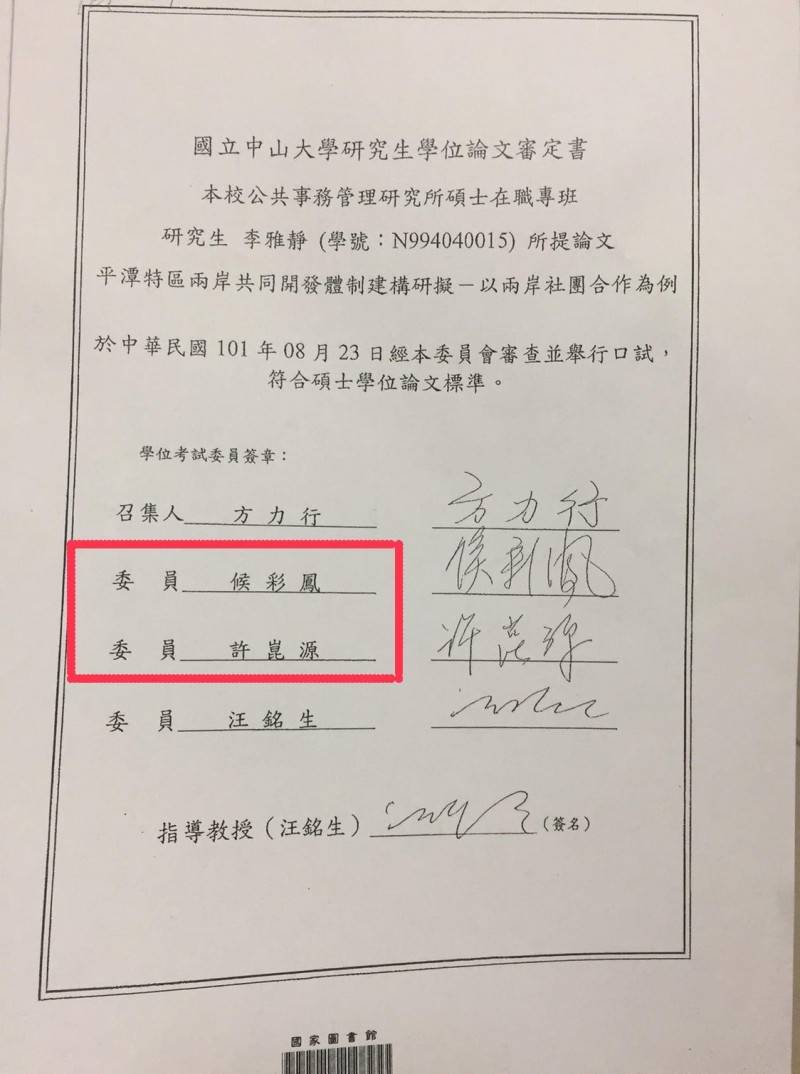 國立中山大學研究生學位論文審定書
本校公共事務管理研究所碩士在職專班
研究生 李雅靜 (學號：N994040015) 所提論文
平潭特區兩岸共同開發體制建構研擬－以兩岸社團合作為例
於中華民國 101 年 08 月 23 日經本委員會審查並舉行口試，
符合碩士學位論文標準。
學位考試委員簽章：
召集人 方力行 方力行
委 員 候彩鳳 侯彩鳳
委 員 許崑源 許崑源
委 員 汪銘生
指導教授（汪銘生） （簽名）
國家圖書館